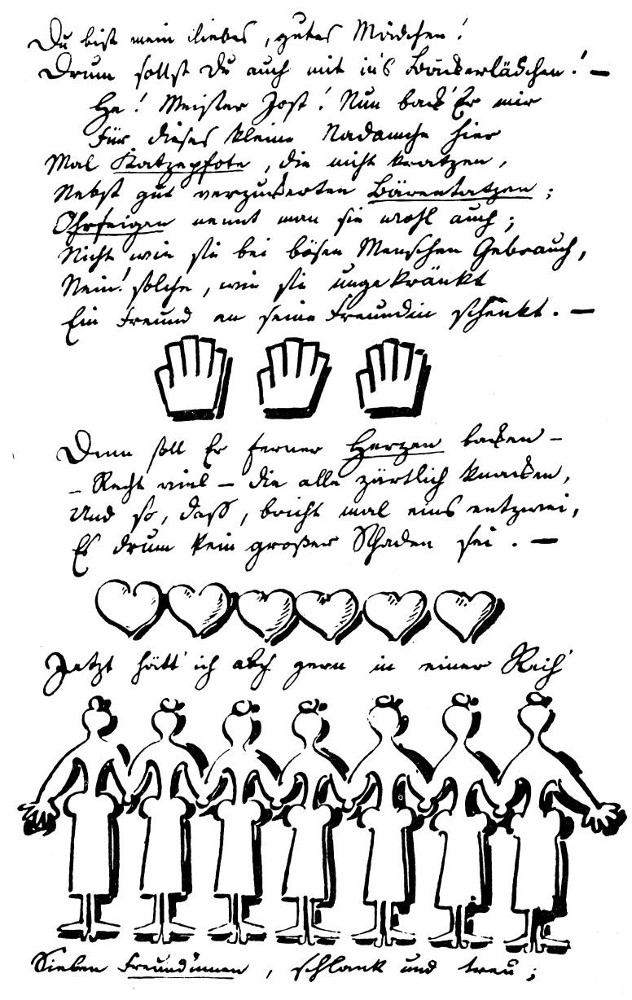 Du bist mein liebes, gutes Mädchen!
Drum sollst Du auch mit in's Bäckerlädchen! —
He! Meister Jost! Nun back' Er mir
Für dieses kleine Madamche hier
Mal Katzepfote, die nicht kratzen,
Nebst gut verzuckerten Bärentatzen;
Ohrfeigen nennt man sie wohl auch;
Nicht wie sie bei bösen Menschen Gebrauch,
Nein! solche, wie sie ungekränkt
Ein Freund an seine Freundin schenkt. —
Dann soll Er ferner Herzen backen —
— Recht viel — die alle zärtlich knacken,
Und so, daß, bricht mal eins entzwei,
Es drum kein großer Schaden sei. —
Jetzt hätt' ich auch gern in einer Reih'
Sieben Freundinnen, schlank und treu;